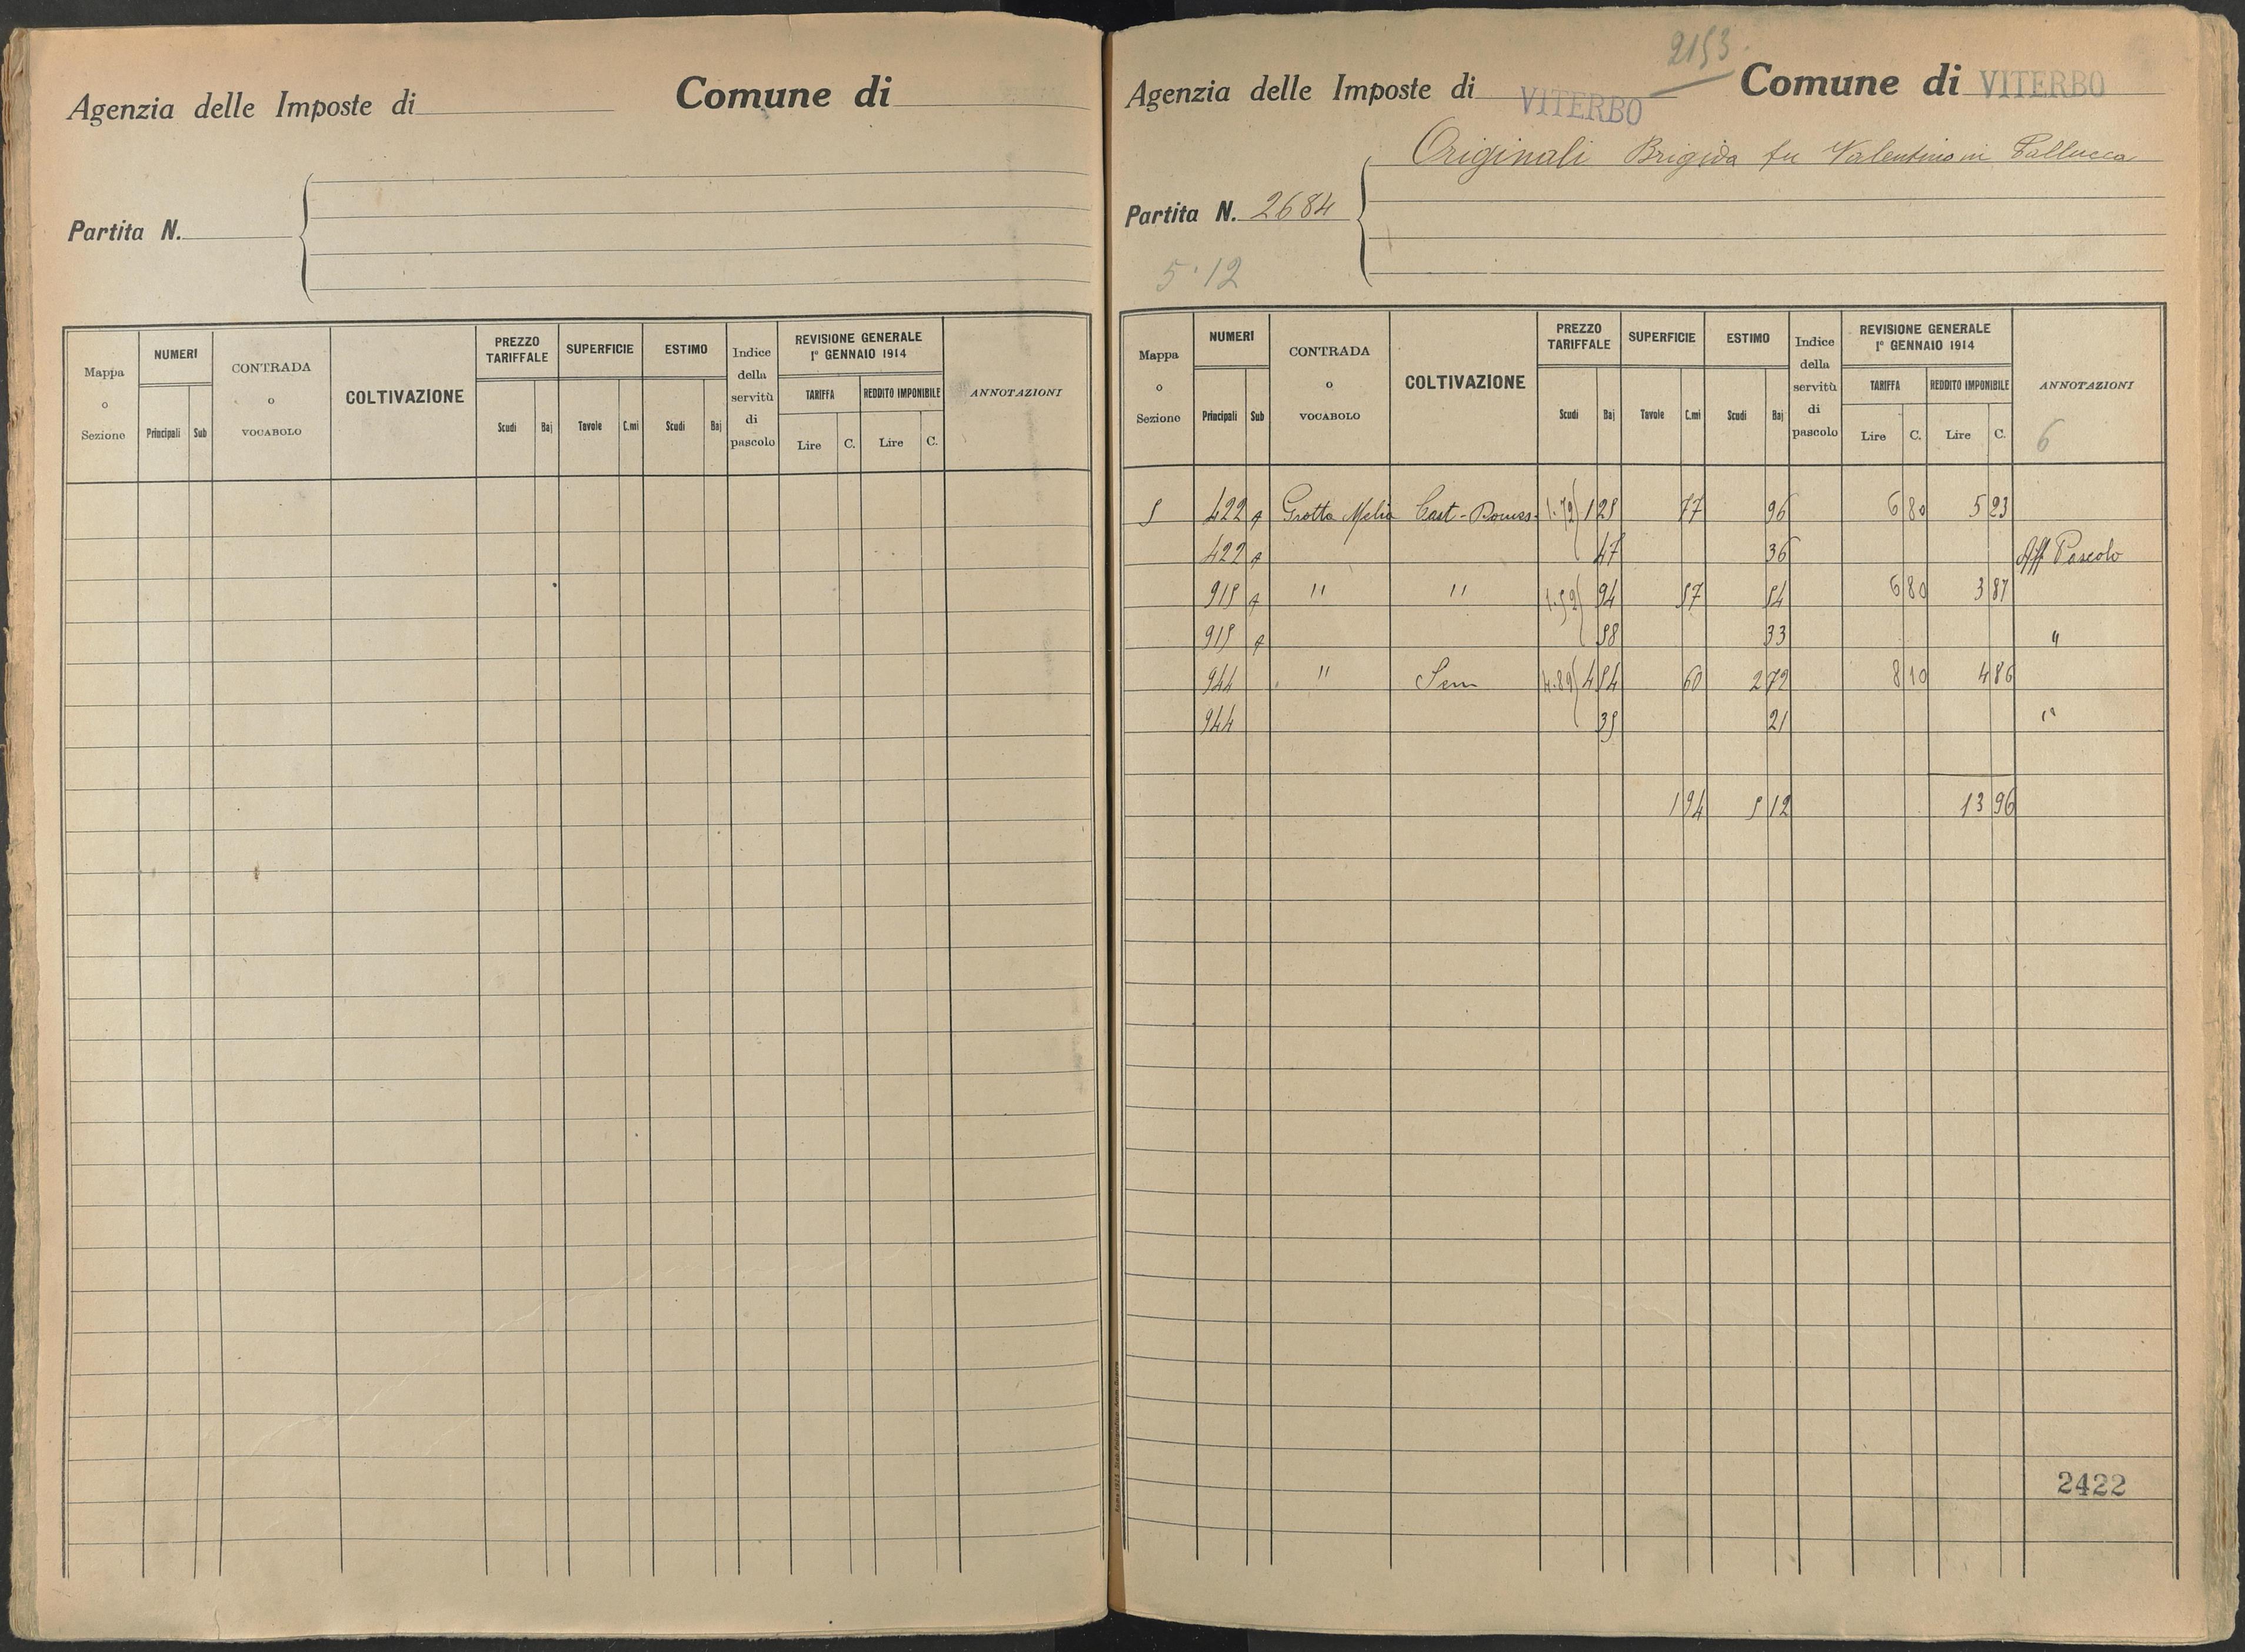 Agenzia delle Imposte di Comune di
Partita N.
Mappa o Sezione NUMERI Principali Sub CONTRADA o VOCABOLO COLTIVAZIONE PREZZO TARIFFALE Scudi Baj SUPERFICIE Tavole C.mi ESTIMO Scudi Baj Indice della servitù di pascolo REVISIONE GENERALE 1° GENNAIO 1914 TARIFFA Lire C. REDDITO IMPONIBILE Lire C. ANNOTAZIONI
2153
Agenzia delle Imposte di VITERBO Comune di VITERBO
Originali Brigida fu Valentino in Pallucca
Partita N. 2684
5.12
Mappa o Sezione NUMERI Principali Sub CONTRADA o VOCABOLO COLTIVAZIONE PREZZO TARIFFALE Scudi Baj SUPERFICIE Tavole C.mi ESTIMO Scudi Baj Indice della servitù di pascolo REVISIONE GENERALE 1° GENNAIO 1914 TARIFFA Lire C. REDDITO IMPONIBILE Lire C. ANNOTAZIONI
6
5 422 A Grotta Melia Cast- 1.72 1 25 77 96 6 80 5 23
422 A 47 36 Aff Pascolo
915 A " " 1.52 94 57 54 6 80 3 87
915 A 58 33 "
944 " Sem 4.89 4 54 60 2 72 8 10 4 86
944 35 21 "
1 94 5 12 13 96
2422